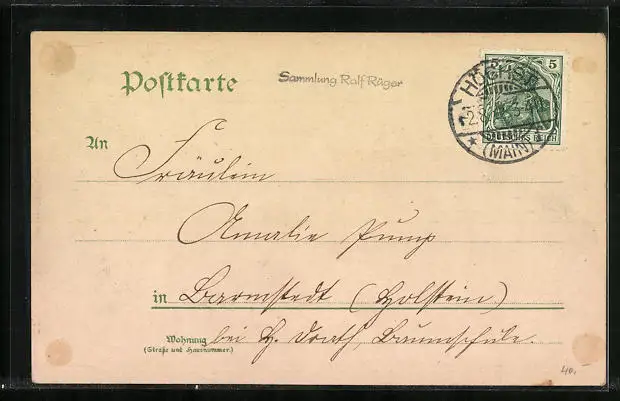 Postkarte
Sammlung Ralf Rüger
5
HÖCHST
(MAIN)
DEUTSCHES REICH
An
Fräulein
Amalie Pump
in Barmstedt (Holstein)
Wohnung bei H. Baumschule.
(Straße und Hausnummer.)
40.-